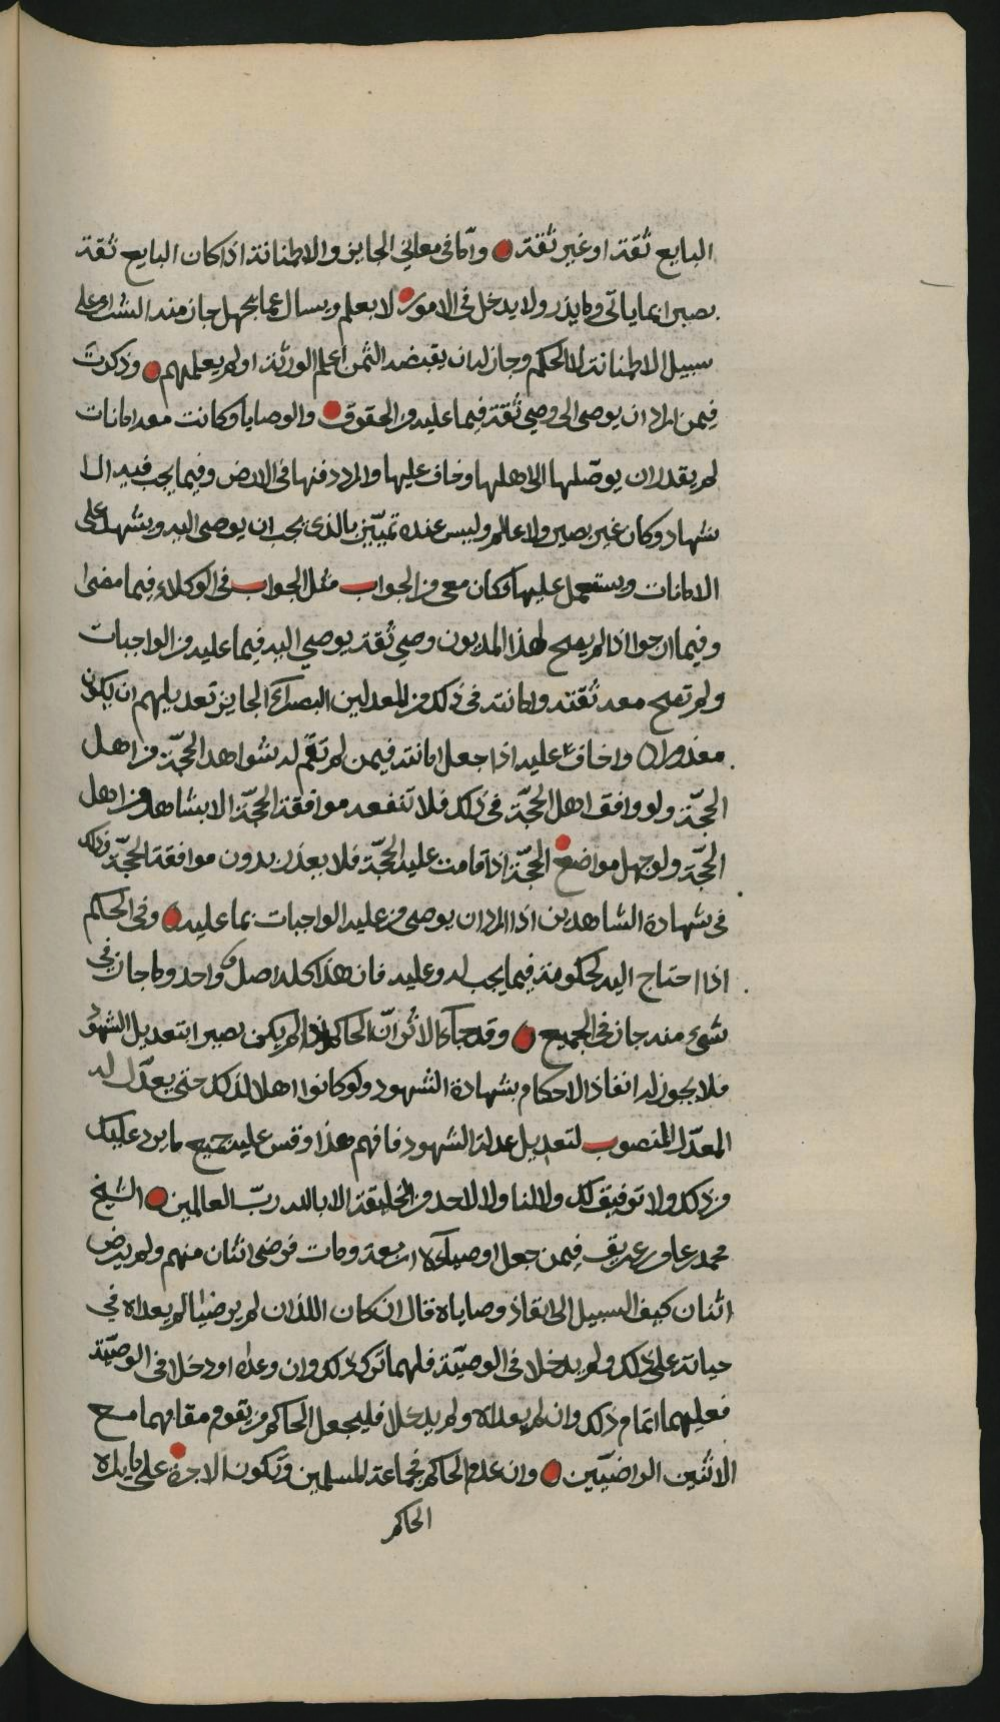 البايع ثقة او غير ثقة وأما في معاني الجايز والاطنانة اذا كان البايع ثقة
بصيرا بما ياتي وما يذر ولا يدخل في الامور لا بعلم ويسال عما يجهل جاز منه الشراء على
سبيل الاطنانة لا الحكم وجاز له ان يقبضه الثمن اعلم الورثة او لم يعلمهم وذكرت
فيمن اراد ان يوصي الى وصي ثقة فيما عليه من الحقوق والوصايا وكانت معه امانات
لم يقدر ان يوصّلها الى اهلها وخاف عليها واراد دفنها في الارض وفيما يجب فيه الا
شهاد وكان غير بصير ولا عالم وليس عنده تمييز بالذي يجب ان يوصي اليه ويشهد على
الامانات ويستعمل عليها فكان معي من الجواب مثل الجواب في الوكلاء فيما مضى
وفيما ارجوا اذا لم يصح لهذا المديون وصي ثقة يوصي اليه فيما عليه من الواجبات
ولم تصح معه ثقته وامانته في ذلك من المعدلين البصراء الجايز تعديلهم ان يكون
معذورا واخاف عليه اذا جعل امانته فيمن لم تقم له شواهد الحجّة من اهل
الحجّة ولو وافق اهل الحجّة في ذلك فلا تنفعه موافقة الحجّة الا بشاهد من اهل
الحجّة ولو جهل مواضع الحجّة اذا قامت عليه الحجّة فلا يعذر بدون موافقة الحجّة وذلك
في شهادة الشاهدين اذا اراد ان يوصي من عليه الواجبات بما عليه وفي الحاكم
اذا احتاج اليه لحكومة فيما يجب له وعليه فان هذا كله اصل واحد وما جاز في
شيء منه جاز في الجميع وقد جاء الاثر انّ الحاكم اذا لم يكن بصيرا بتعديل الشهود
فلا يجوز له انفاذ الاحكام بشهادة الشهود ولو كانوا اهلا لذلك حتى يعدّل له
المعدّل المنصوب لتعديل عدلة الشهود فافهم هذا وقس عليه جميع ما يرد عليك
من ذلك ولا توفيق لك ولا لنا ولا لاحد من الخليقة الا بالله ربّ العالمين الشيخ
محمد بن علي بن عريق فيمن جعل اوصياءه اربعة ومات فرضى اثنان منهم ولم يرض
اثنان كيف السبيل الى انفاذ وصاياه قال ان كان اللذان لم يرضيا لم يعداه في
حياته على ذلك ولم يدخلا في الوصيّة فلهما ترك ذلك وان وعداه او دخلا في الوصيّة
فعليهما اتمام ذلك وان لم يعداه ولم يدخلا فليجعل الحاكم من يقوم مقامهما مع
الاثنين الراضيين وان عدم الحاكم فجماعة المسلمين وتكون الاجرة على ما يراه
الحاكم